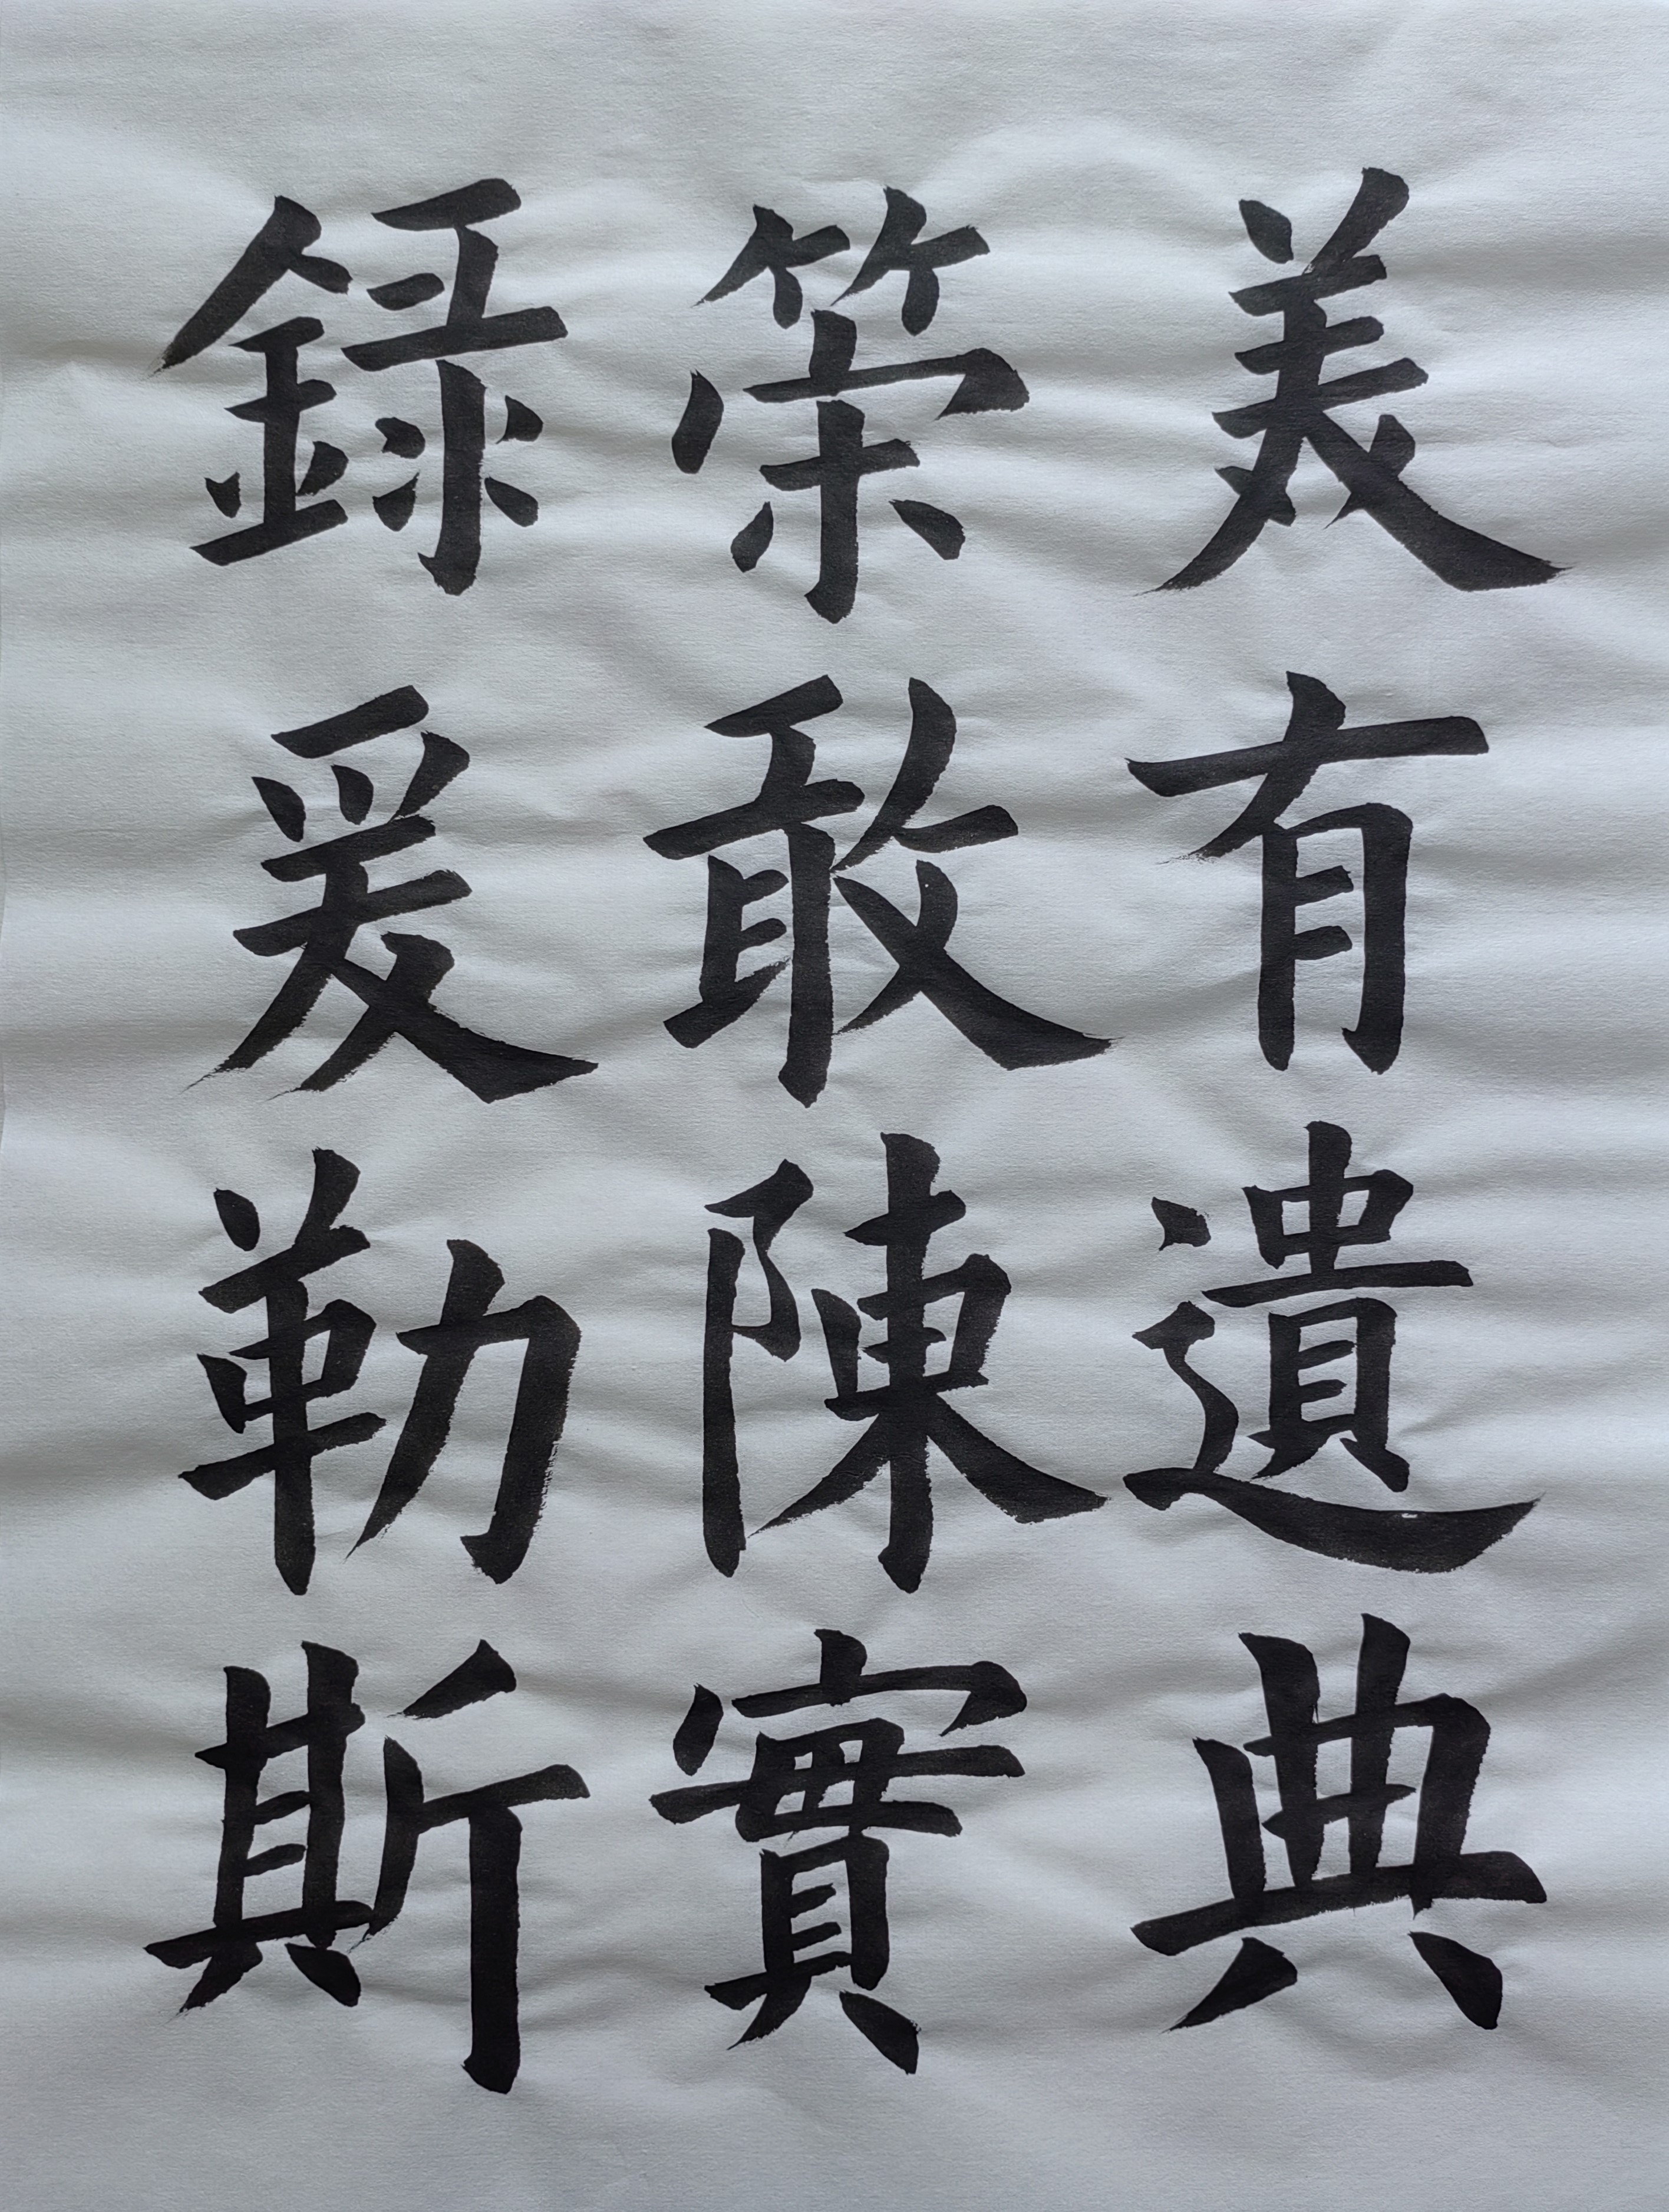 美有遺典
策敢陳實
録爰勒斯